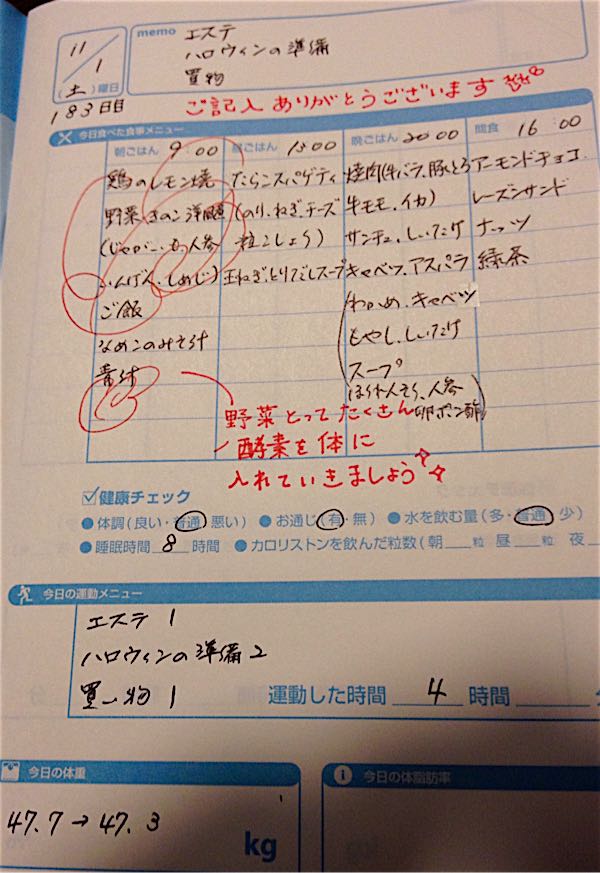 11/1
(土)曜日
183日目
memo
エステ
ハロウィンの準備
買物
ご記入ありがとうございます
今日食べた食事メニュー
朝ごはん 9:00
鶏のレモン焼
野菜きのこ洋風
(じゃがいも、人参
いんげん、しめじ)
ご飯
なめこのみそ汁
青汁
昼ごはん 13:00
たらこスパゲティ
(のり、ねぎ、チーズ
粒こしょう)
玉ねぎ、とりだしスープ
晩ごはん 20:00
焼肉(牛バラ、豚とろ
牛モモ、イカ)
サンチュ、しいたけ
キャベツ、アスパラ
わかめ、キャベツ
もやし、しいたけ
スープ
ほうれんそう、人参
卵ポン酢
間食 16:00
アーモンドチョコ
レーズンサンド
ナッツ
緑茶
野菜とってたくさん
酵素を体に
入れていきましょう
健康チェック
●体調(良い・普通・悪い) ●お通じ(有・無) ●水を飲む量(多・普通・少)
●睡眠時間 8 時間 ●カロリストンを飲んだ粒数(朝 粒 昼 粒 夜
今日の運動メニュー
エステ 1
ハロウィンの準備 2
買い物 1
運動した時間 4 時間 分
今日の体重
47.7→47.3
kg
今日の体脂肪率